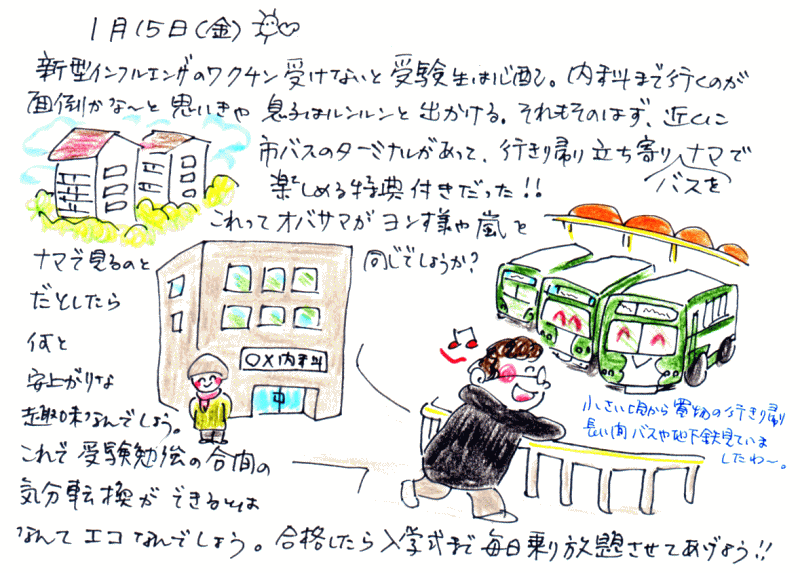 1月15日(金)
新型インフルエンザのワクチン受けてないと受験生は心配。内科まで行くのが
面倒かな〜と思いきや息子はルンルンと出かける。それもそのはず、近くに
市バスのターミナルがあって、行き帰り立ち寄りナマで
バスを
楽しめる特典付きだった!!
これってオバサマがヨン様や嵐を
ナマで見るのと
同じでしょうか?
だとしたら
何と
安上がりな
趣味なんでしょう。
これで受験勉強の合間の
気分転換ができるとは
なんてエコなんでしょう。合格したら入学式まで毎日乗り放題させてあげよう!!
〇×内科
小さい頃から買物の行き帰り
長い間バスや地下鉄見ていま
したわ〜。